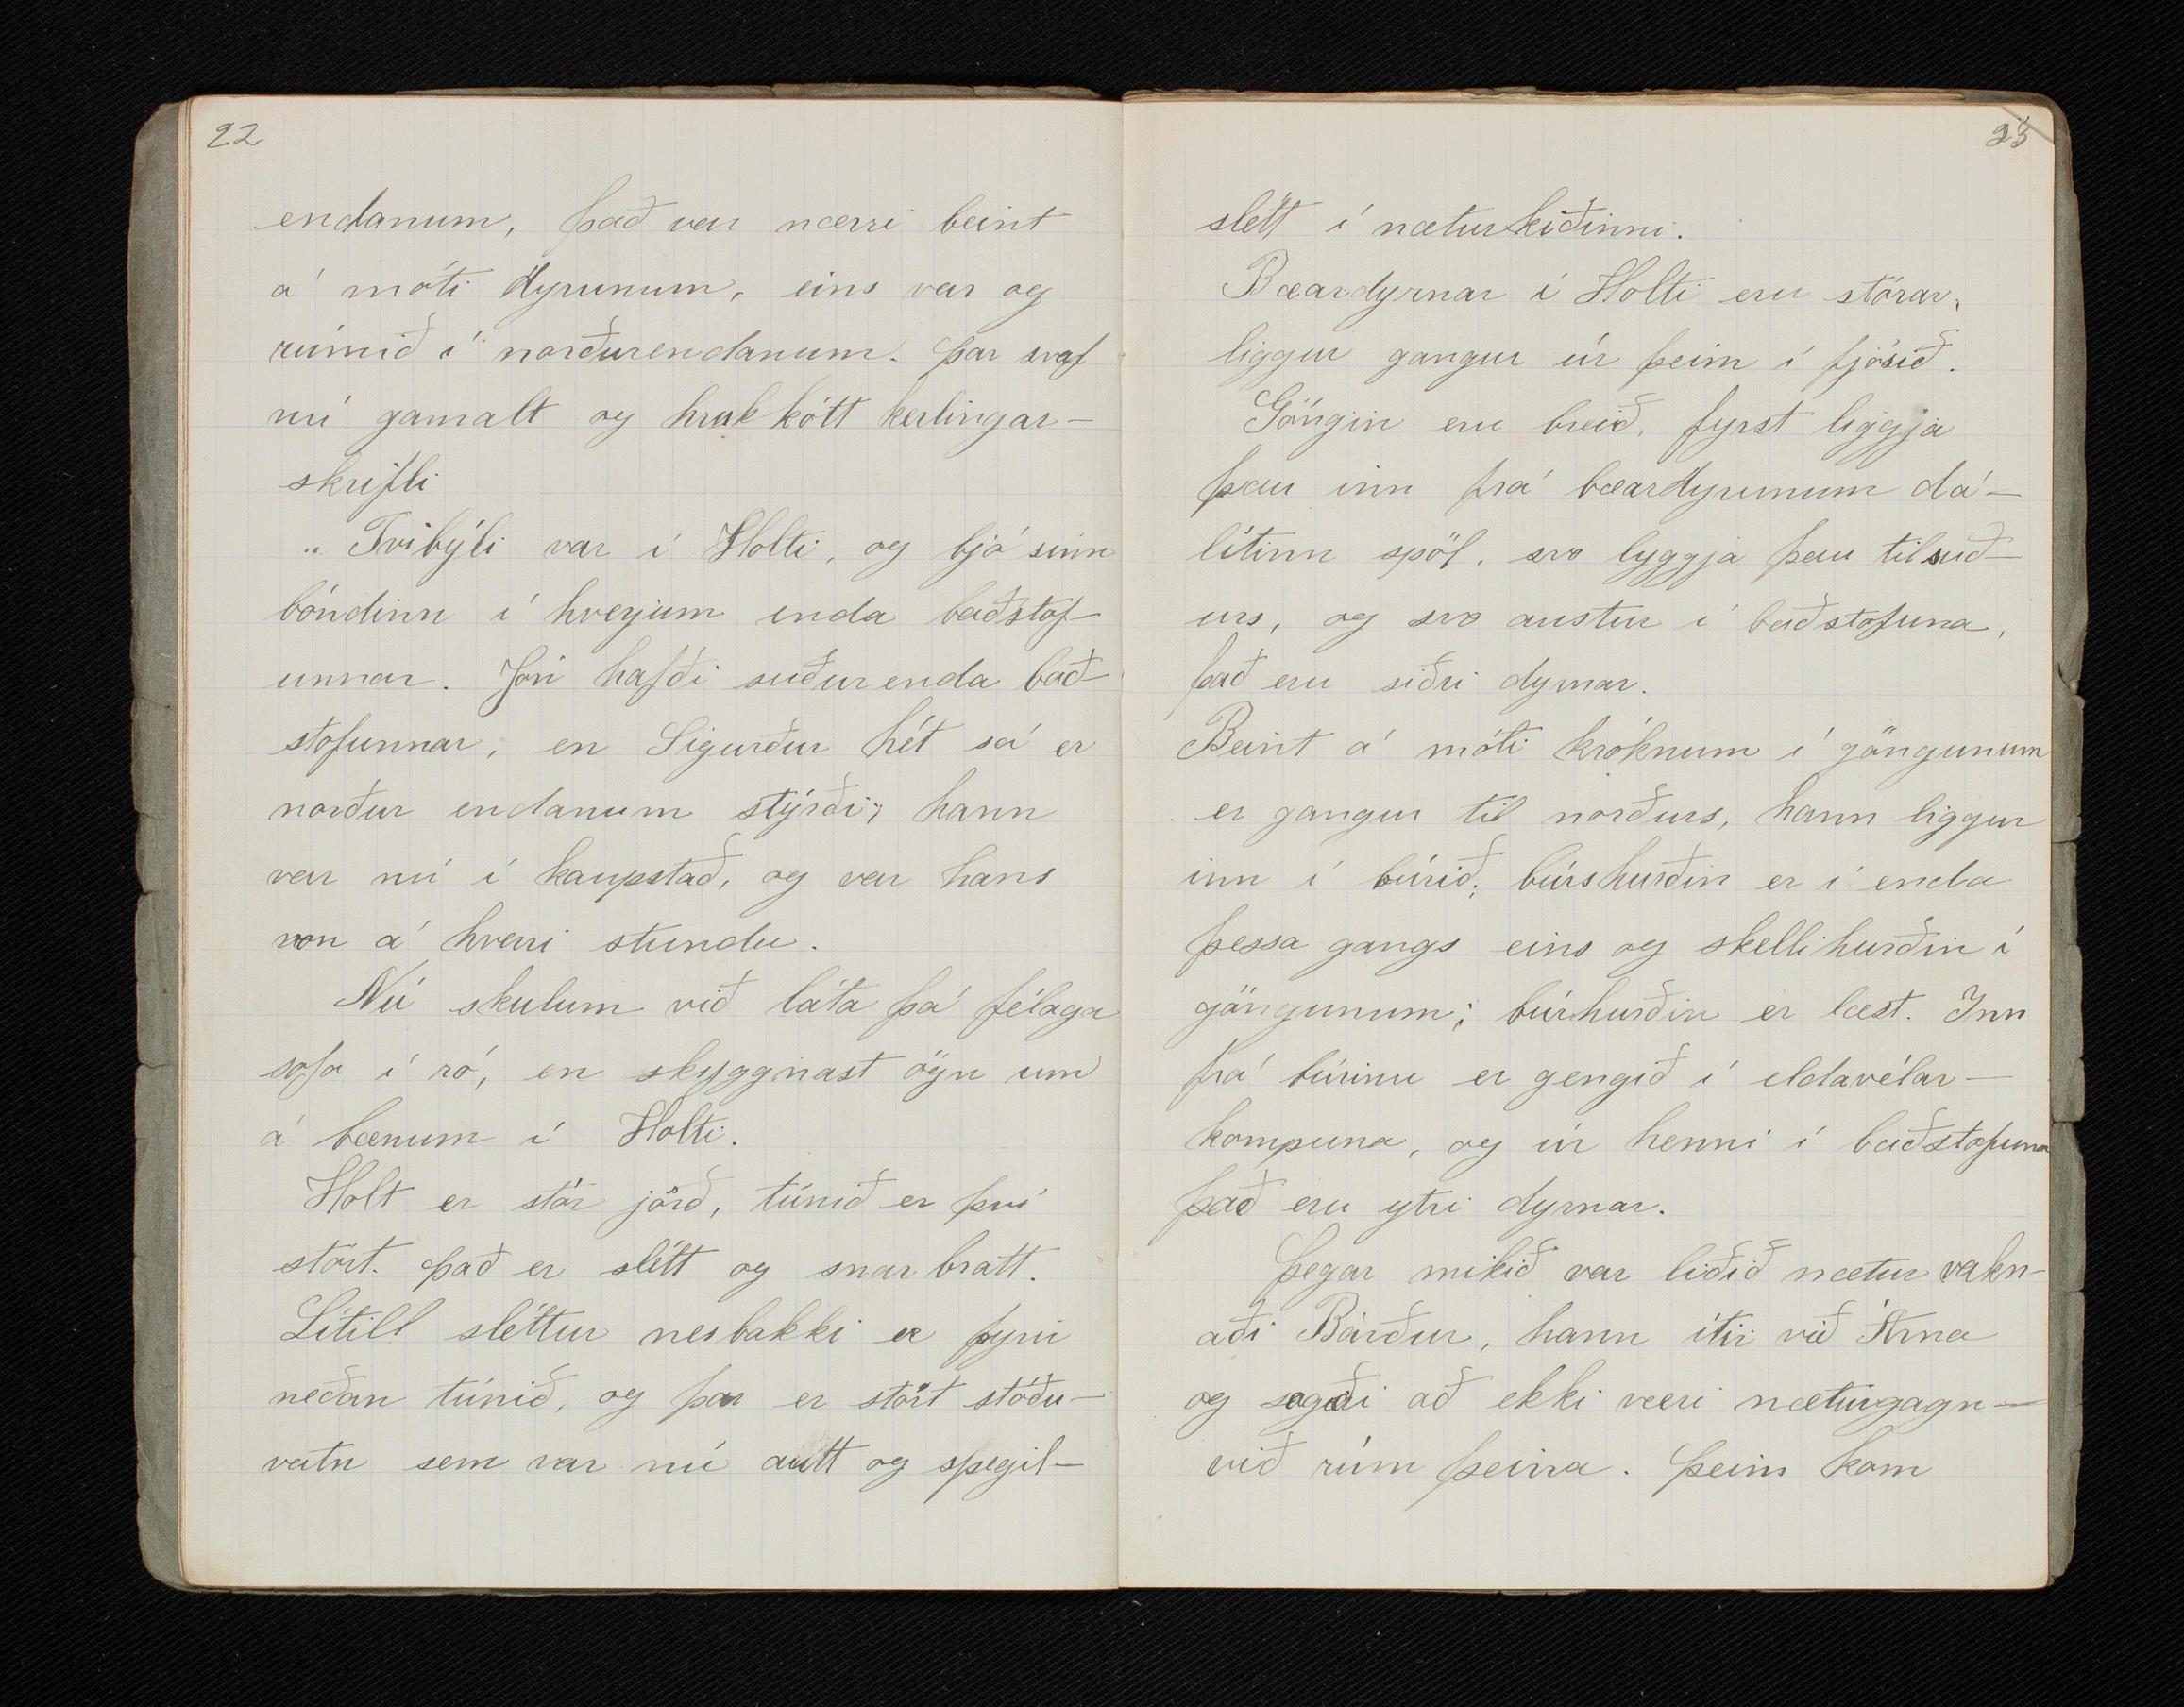 22
endanum, það var nærri beint
á móti dyrunum, eins var og
rúmið í norðurendanum. þar svaf
nú gamalt og hrukkótt kerlingar-
skrifli
„ Tvibýli var í Holti, og bjó sinn
bóndinn í hverjum enda baðstof-
unnar. Jón hafði suðurenda bað-
stofunnar, en Sigurður hét sá er
norður endanum stýrði; hann
var nú í kaupstað, og var hans
von á hverri stundu.
Nú skulum við láta þá félaga
sofa í ró, en skyggnast ögn um
á bænum í Holti.
Holt er stór jörð, túnið er því
stórt. það er slétt og snarbratt.
Litill sléttur nesbakki er fyrir
neðan túnið, og þar er stórt stöðu-
vatn sem var nú autt og spegil-
23
slétt í næturkiðinni.
Bæardyrnar í Holti eru stórar,
liggur gangur úr þeim í fjósið.
Göngin eru breið, fyrst liggja
þau inn frá bæardyrunum dá-
lítinn spöl, svo lyggja þau til suð-
urs, og svo austur í baðstofuna,
það eru siðri dyrnar.
Beint á móti króknum í göngunum
er gangur til norðurs, hann liggur
inn í búrið; búrshurðin er í enda
þessa gangs eins og skellihurðin í
göngunum; búrhurðin er læst. Inn
frá búrinu er gengið í eldavélar-
kompuna, og úr henni í baðstofuna
það eru ytri dyrnar.
Þegar mikið var liðið nætur vakn-
aði Bárður, hann ítir við Árna
og sagði að ekki væri næturgagn-
við rúm þeirra. Þeim kom